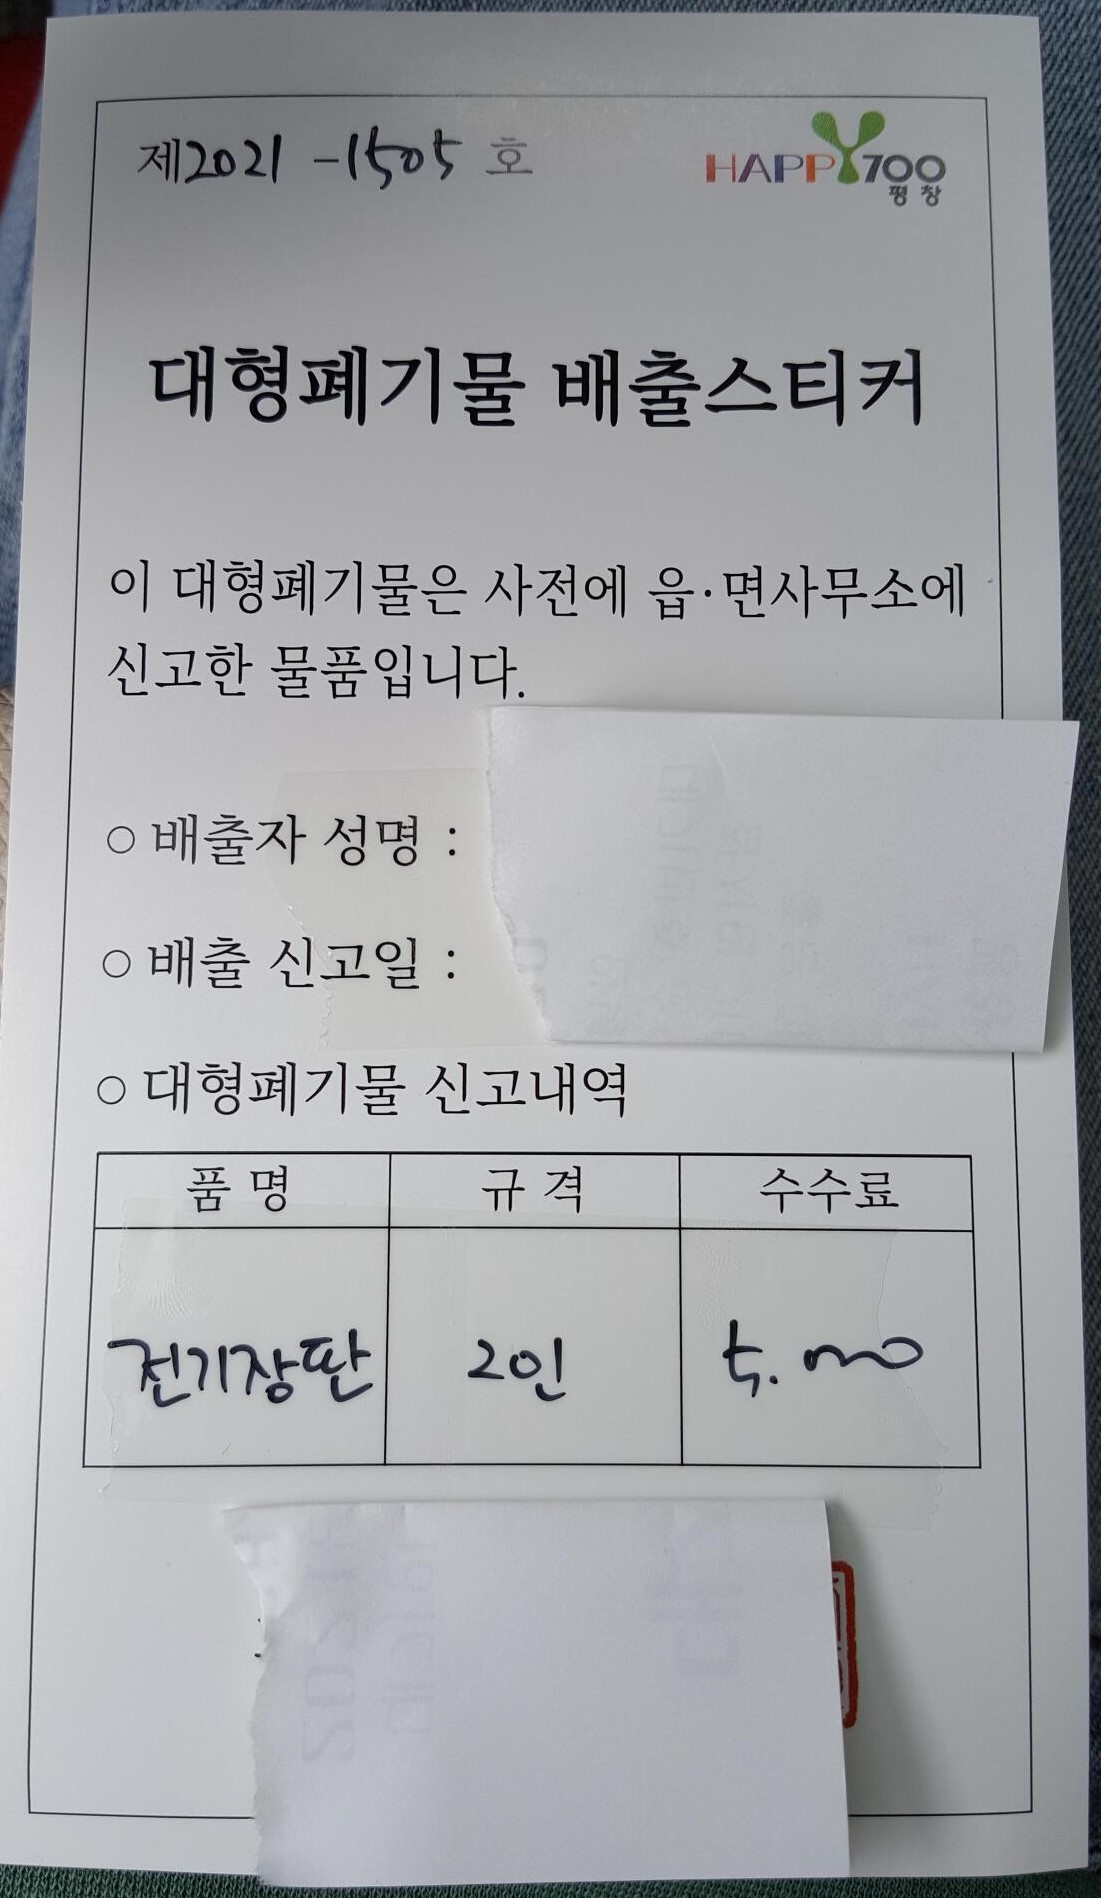 제2021 -1505 호
HAPPY700
평창
대형폐기물 배출스티커
이 대형폐기물은 사전에 읍·면사무소에
신고한 물품입니다.
○ 배출자 성명 :
○ 배출 신고일 :
○ 대형폐기물 신고내역
품 명 규 격 수수료
전기장판 2인 5.000